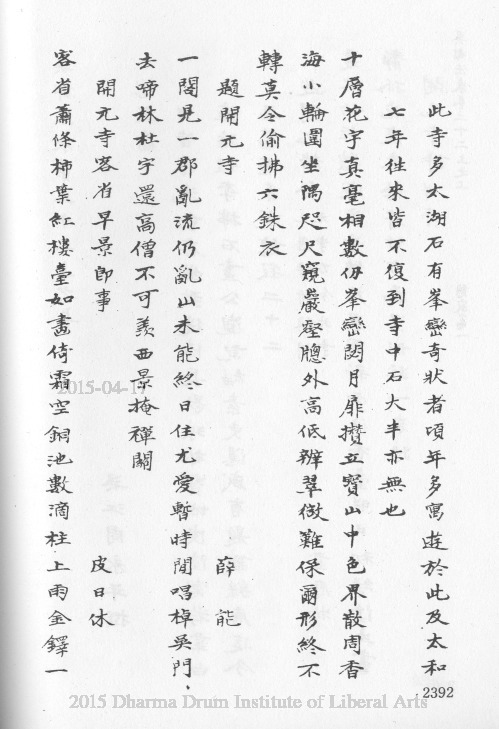 此寺多太湖石有峯巒奇狀者頃年多寓遊於此及太和
七年徃來皆不復到寺中石大半亦無也
十層花宇真毫相數仞峯巒閟月扉攢立寶山中色界散周香
海小輪圍坐隅咫尺窺巖壑牕外高低辨翠微難保爾形終不
轉莫令偷拂六銖衣
題開元寺 薛能
一閱見一郡亂流仍亂山未能終日住尤愛暫時閒唱棹吳門、
去啼林杜宇還高僧不可羨西景掩禪關
開元寺客省早景即事 皮日休
客省蕭條柿葉紅樓臺如畫倚霜空銅池數滴桂上雨金鐸一
2392
2015-04-17
2015 Dharma Drum Institute of Liberal Arts